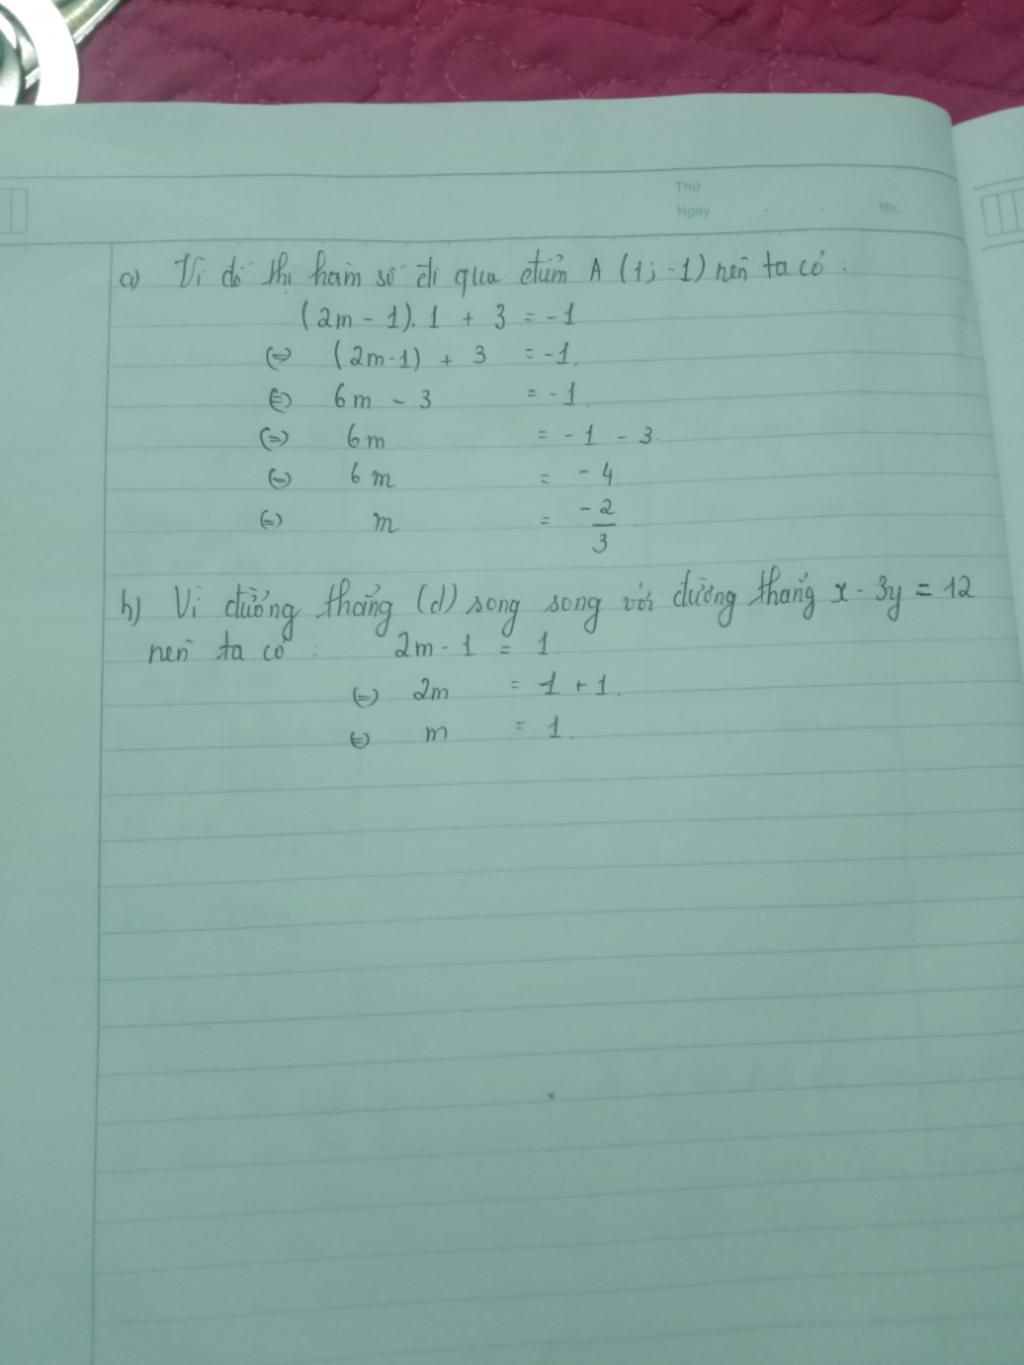 Thứ
Ngày . . No.
a) Vì đồ thị hàm số đi qua điểm A (1; -1) nên ta có :
(2m - 1). 1 + 3 = -1
(=) (2m-1) + 3 = -1.
(=) 6m - 3 = -1.
(=) 6m = -1 - 3.
(=) 6m = -4.
(=) m = -2/3
b) Vì đường thẳng (d) song song với đường thẳng x - 3y = 12
nên ta có : 2m - 1 = 1.
(=) 2m = 1 + 1.
(=) m = 1.